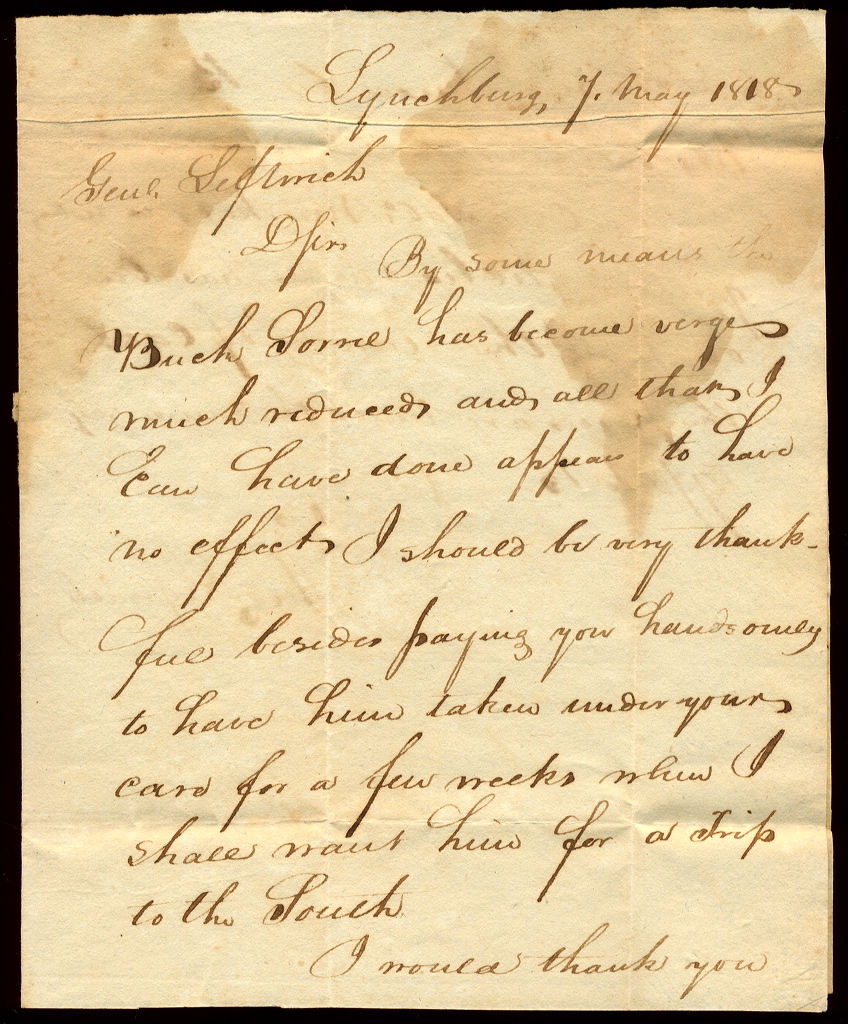 Lynchburg, 7. May 1818
Genl. Leftwich
DSir
By some means the
Buck Sorrel has become verge
much reduced and all that I
Can have done appear to have
no effect I should be very thank-
ful besides paying you handsomely
to have him taken under your
care for a few weeks when I
shall want him for a Trip
to the South
I would thank you